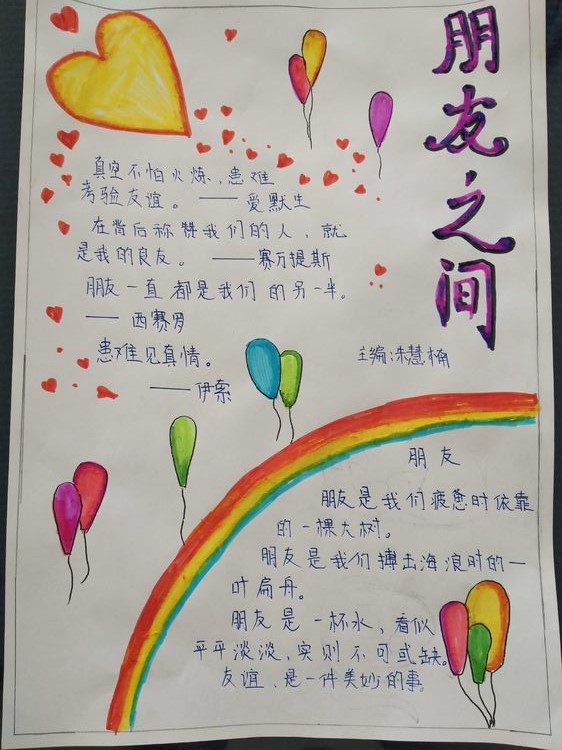 朋友之间
真空不怕火炼,患难
考验友谊。——爱默生
在背后称赞我们的人,就
是我的良友。——赛万提斯
朋友一直都是我们的另一半。
——西赛罗
患难见真情。
——伊索
主编:朱慧楠
朋友
朋友是我们疲惫时依靠
的一棵大树。
朋友是我们搏击海浪时的一
叶扁舟。
朋友是一杯水,看似
平平淡淡,实则不可或缺。
友谊,是一件美妙的事。